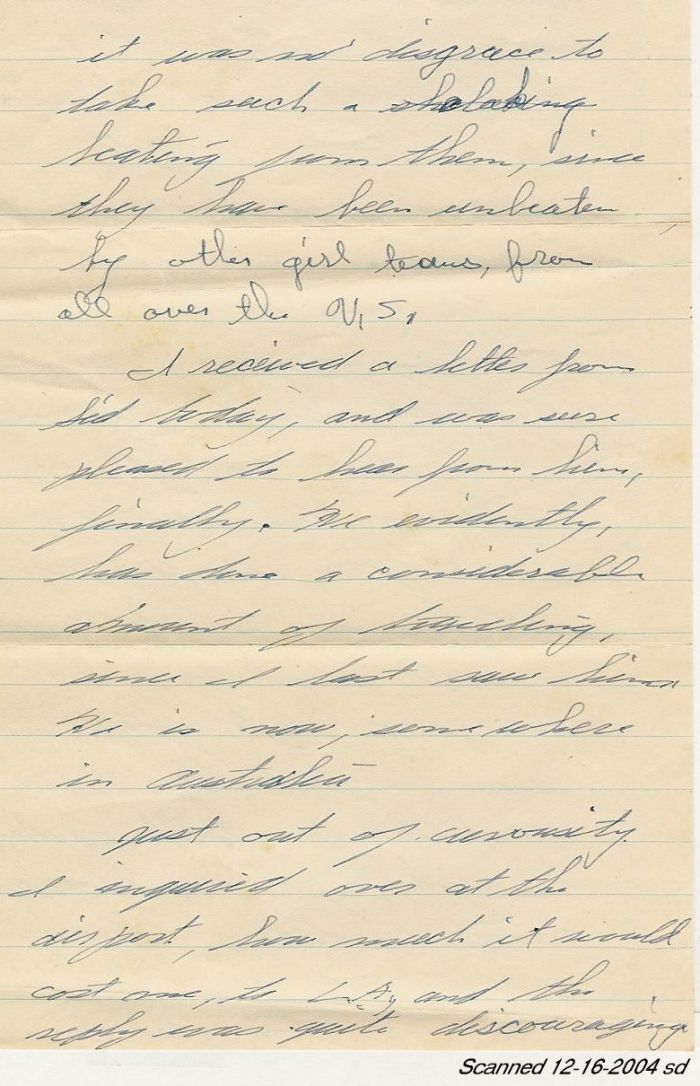 it was no disgrace to
take such a shalaking
beating from them, since
they have been unbeaten
by other girl teams, from
all over the U.S.
I received a letter from
Sid today, and was sure
pleased to hear from him,
finally. He evidently,
has done a considerable
amount of traveling,
since I last saw him.
He is now, somewhere
in Australia
Just out of curiousity
I inquired over at the
airport, how much it would
cost me, to L.A., and the
reply was quite discouraging
Scanned 12-16-2004 sd